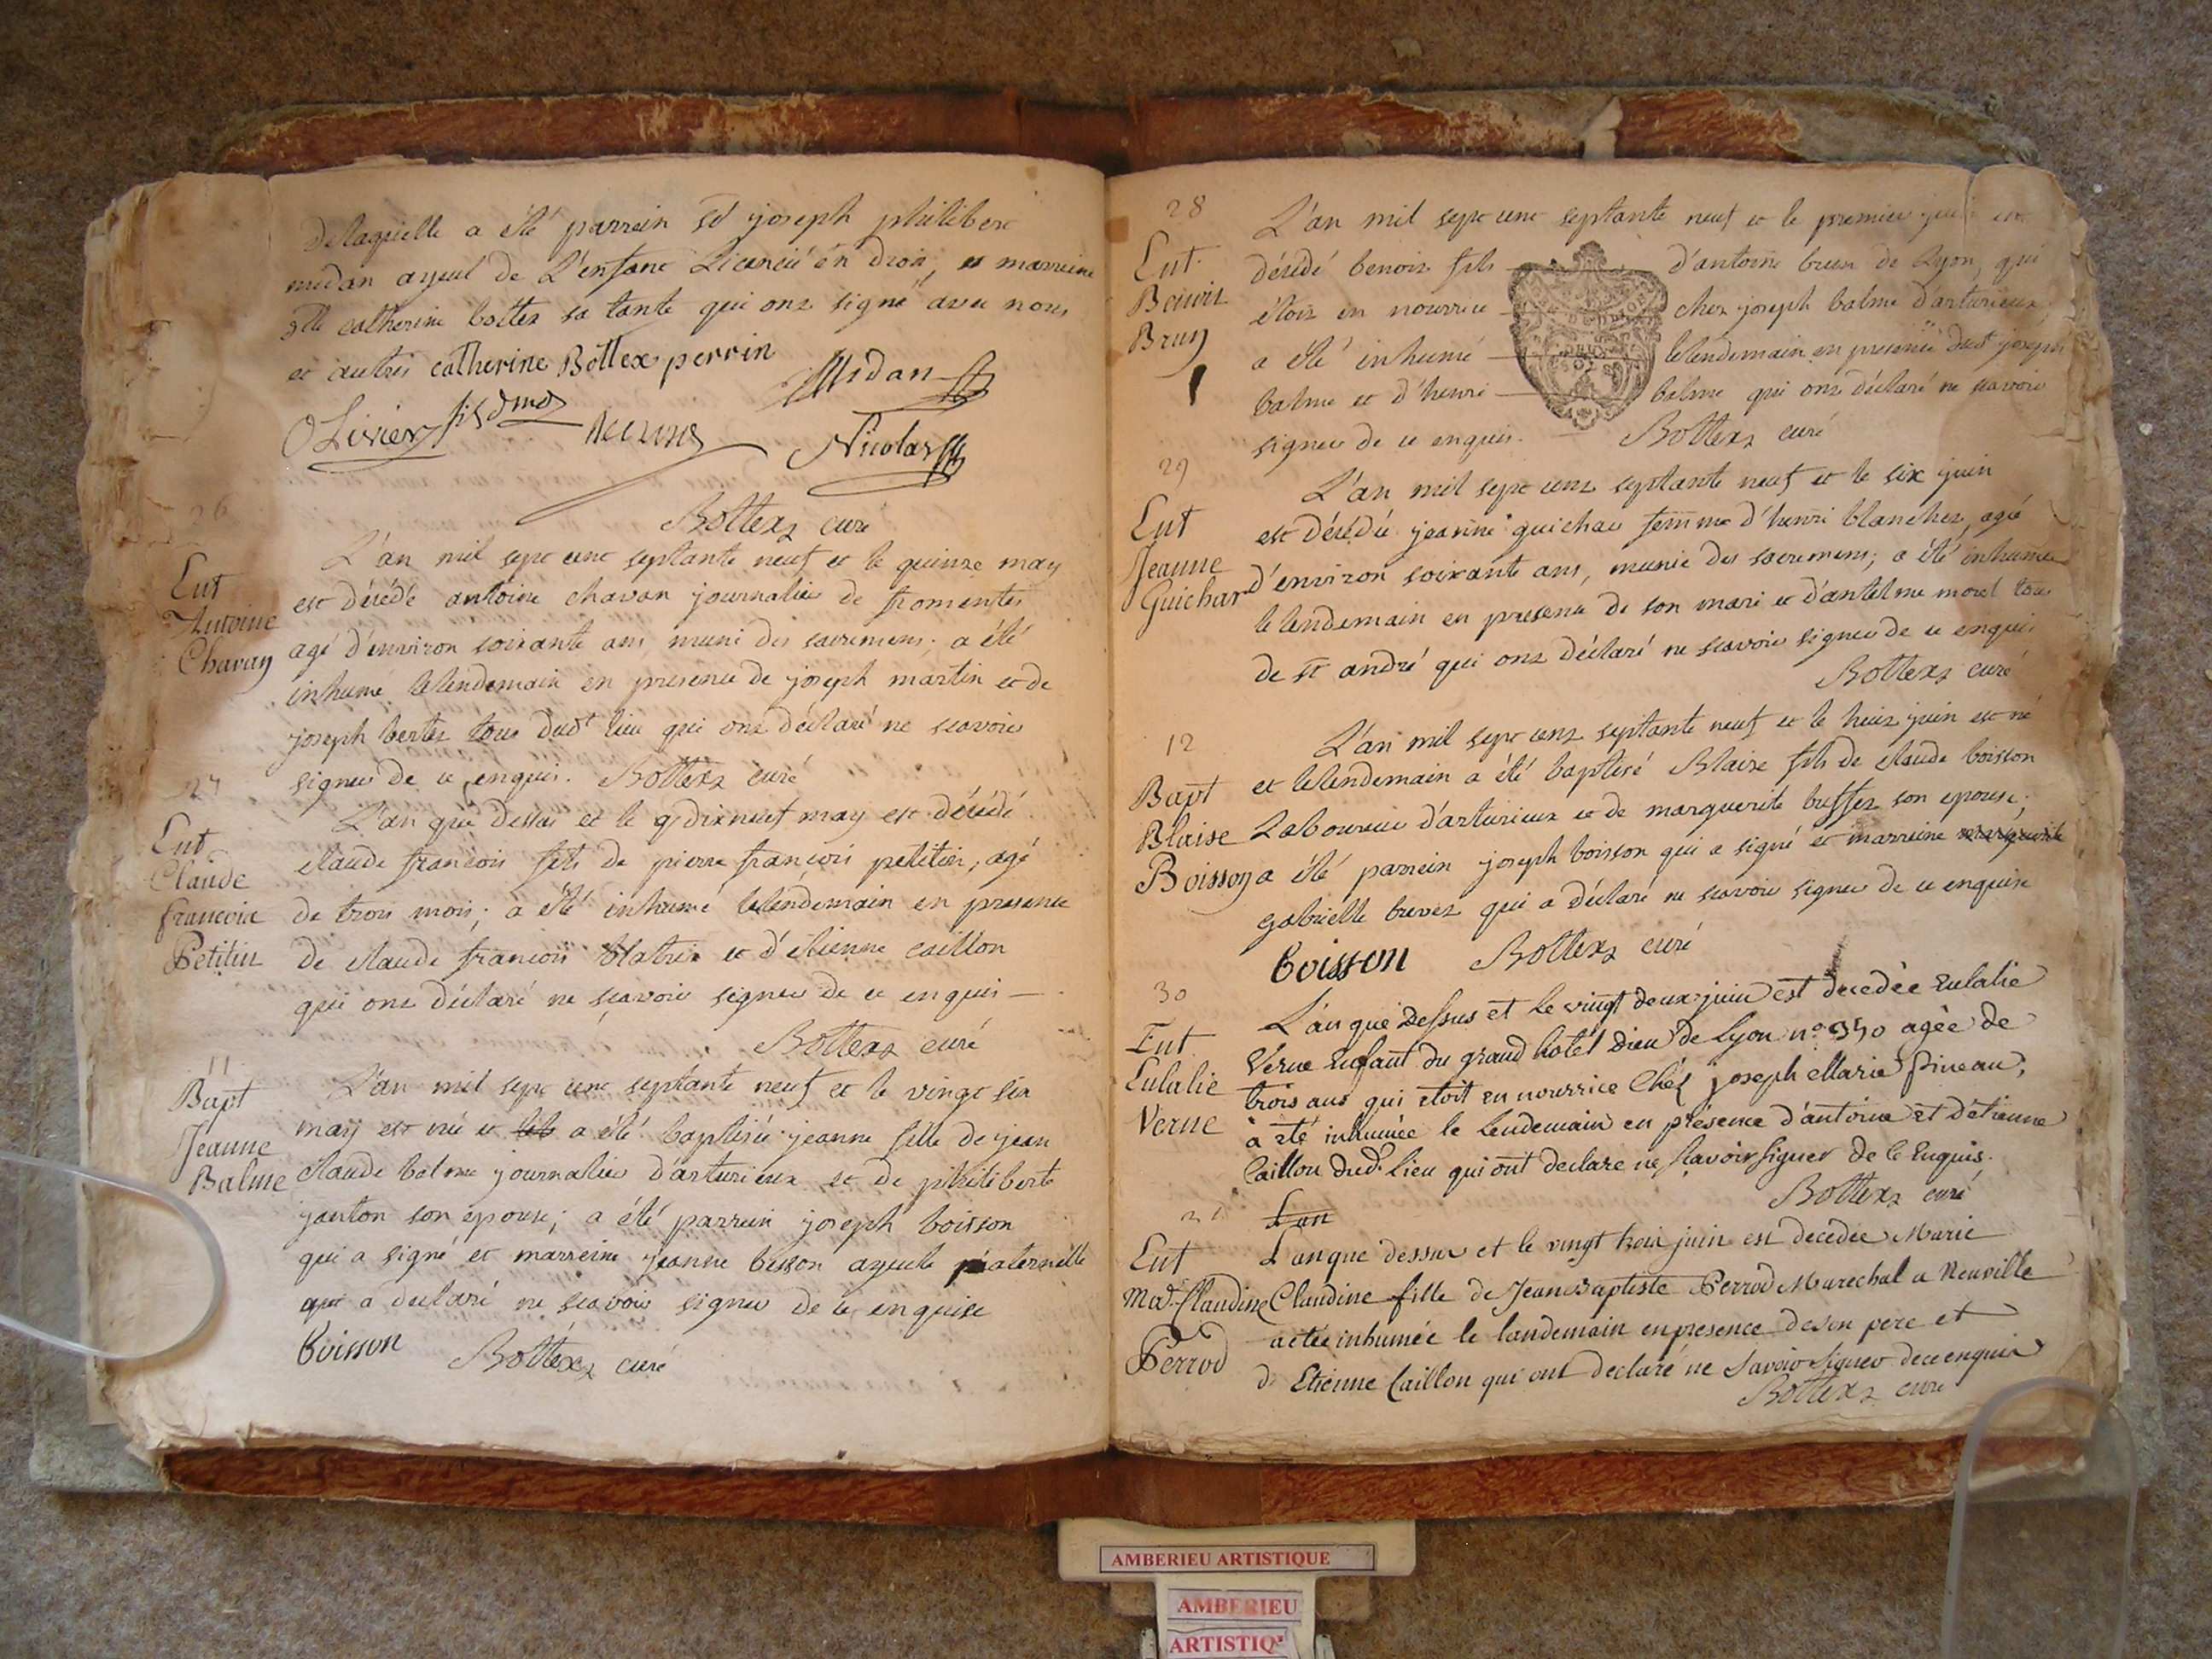 delaquelle a été parrein sr joseph philibert
midan ayeul de L'enfant Licencié en droit, et marreine
dlle catherine bottex sa tante qui ont signé avec nous
et autres catherine Bottex perrin
Midan
Olivier fils
Nicolas
Bottex curé
26
Ent
Antoine
Chavan
L'an mil sept cent septante neuf et le quinze may
est décédé antoine chavan journalier de fromentes
agé d'environ soixante ans muni des sacremens; a été
inhumé le lendemain en presence de joseph martin et de
joseph bertet tous dudt lieu qui ont déclaré ne scavoir
signer de ce enquis. Bottex curé
27
Ent
Claude
francois
Petitin
L'an que dessus et le dixneuf may est décédé
claude francois fils de pierre francois petitin, agé
de trois mois; a été inhumé le lendemain en presence
de claude francois blatrix et d'étienne caillon
qui ont déclaré ne scavoir signer de ce enquis
Bottex curé
11
Bapt
Jeanne
Balme
L'an mil sept cent septante neuf et le vingt six
may est née et a été baptisée jeanne fille de jean
claude balme journalier d'arturieux et de philiberte
janton son épouse; a été parrein joseph boisson
qui a signé et marreine jeanne besson ayeule paternelle
qui a déclaré ne scavoir signer de ce enquise
boisson Bottex curé
28
Ent.
Benoit
Brun
L'an mil sept cent septante neuf et le premier juin est
décédé benoit fils d'antoine brun de Lyon, qui
étoit en nourrice chez joseph balme d'arturieux
a été inhumé le lendemain en presence dudt joseph
balme et d'henri balme qui ont déclaré ne scavoir
signer de ce enquis. Bottex curé
29
Ent
Jeanne
Guichard
L'an mil sept cent septante neuf et le six juin
est décédée jeanne guichar femme d'henri blanchet, agé
d'environ soixante ans, munie des sacremens; a été inhumée
le lendemain en presence de son mari et d'antelme morel tous
de st andré qui ont déclaré ne scavoir signer de ce enquis
Bottex curé
12
Bapt
Blaise
Boisson
L'an mil sept cent septante neuf et le huit juin est né
et le lendemain a été baptisé Blaise fils de claude boisson
Laboureur d'arturieux et de marguerite buffet son épouse;
a été parrein joseph boisson qui a signé et marreine marguerite
gabrielle brevet qui a déclaré ne scavoir signer de ce enquise
boisson Bottex curé
30
Ent
Eulalie
Verne
L'an que dessus et le vingt deux juin est decedée Eulalie
Verne Enfant du grand hotel Dieu de Lyon n° 350 agée de
trois ans qui etoit en nourrice chéz joseph Marie pineau,
a été inhumée le lendemain en présence d'antoine et d'etienne
Caillon dudt. lieu qui ont declare ne scavoir signer de ce Enquis.
Bottex curé
31
L'an
Ent
Mar. Claudine
Perrod
L'an que dessus et le vingt trois juin est decedée Marie
Claudine fille de Jean Baptiste Perrod Marechal a Neuville
a etée inhumée le landemain en presence de son pere et
d' Etienne Caillon qui ont declaré ne savoir signer de ce enquis
Bottex curé
AMBERIEU ARTISTIQUE
AMBERIEU
ARTISTIQ